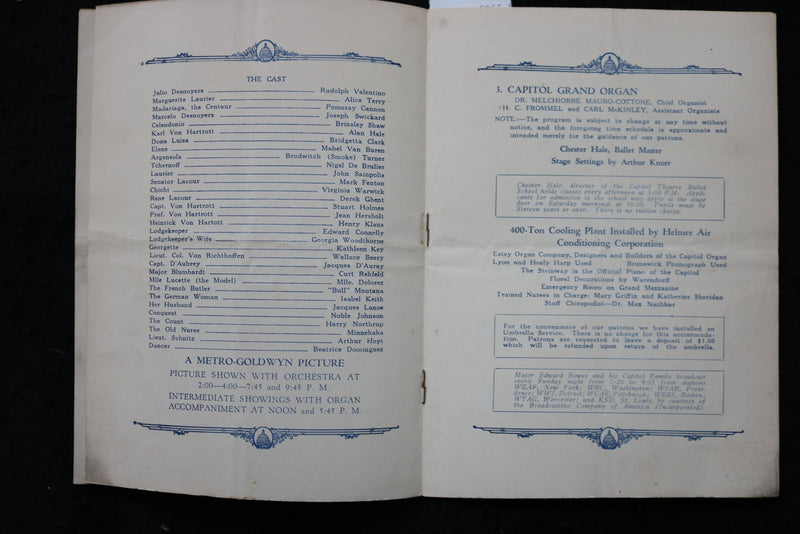 THE CAST
Julio Desnoyers Rudolph Valentino
Marguerite Laurier Alice Terry
Madariaga, the Centaur Pomeroy Cannon
Marcelo Desnoyers Joseph Swickard
Celendonio Brinsley Shaw
Karl Von Hartrott Alan Hale
Dona Luisa Bridgetta Clark
Elena Mabel Van Buren
Argensola Brodwitch (Smoke) Turner
Tchernoff Nigel De Brulier
Laurier John Sainpolis
Senator Lacour Mark Fenton
Chichi Virginia Warwick
Rene Lacour Derek Ghent
Capt. Von Hartrott Stuart Holmes
Prof. Von Hartrott Jean Hersholt
Heinrick Von Hartott Henry Klaus
Lodgekeeper Edward Connelly
Lodgekeeper's Wife Georgia Woodthorpe
Georgette Kathleen Key
Lieut. Col. Von Richthoffen Wallace Beery
Capt. D'Aubrey Jacques D'Auray
Major Blumhardt Curt Rehfeld
Mlle Lucette (the Model) Mlle. Dolorez
The French Butler "Bull" Montana
The German Woman Isabel Keith
Her Husband Jacques Lanoe
Conquest Noble Johnson
The Count Harry Northrup
The Old Nurse Minnehaha
Lieut. Schnitz Arthur Hoyt
Dancer Beatrice Dominguez
A METRO-GOLDWYN PICTURE
PICTURE SHOWN WITH ORCHESTRA AT
2:00—4:00—7:45 and 9:45 P. M.
INTERMEDIATE SHOWINGS WITH ORGAN
ACCOMPANIMENT AT NOON and 5:45 P. M.
3. CAPITOL GRAND ORGAN
DR. MELCHIORRE MAURO-COTTONE, Chief Organist
H. C. FROMMEL and CARL McKINLEY, Assistant Organists
NOTE:—The program is subject to change at any time without
notice, and the foregoing time schedule is approximate and
intended merely for the guidance of our patrons.
Chester Hale, Ballet Master
Stage Settings by Arthur Knorr
Chester Hale, director of the Capitol Theatre Ballet
School holds classes every afternoon at 5:00 P.M. Appli-
cants for admission to the school may apply at the stage
door on Saturday mornings at 10:00. Pupils must be
Sixteen years or over. There is no tuition charge.
400-Ton Cooling Plant Installed by Helmer Air
Conditioning Corporation
Estey Organ Company, Designers and Builders of the Capitol Organ
Lyon and Healy Harp Used Brunswick Phonograph Used
The Steinway is the Official Piano of the Capitol
Floral Decorations by Warendorff
Emergency Room on Grand Mezzanine
Trained Nurses in Charge: Mary Griffin and Katherine Sheridan
Staff Chiropodist—Dr. Max Nachbar
For the convenience of our patrons we have installed an
Umbrella Service. There is no charge for this accommoda-
tion. Patrons are requested to leave a deposit of $1.00
which will be refunded upon return of the umbrella.
Major Edward Bowes and his Capitol Family broadcast
every Sunday night from 7:20 to 9:15 from stations
WEAF, New York; WRC, Washington; WJAR, Provi-
dence; WWJ, Detroit; WCAE, Pittsburgh; WEEI, Boston;
WTAG, Worcester; and KSD, St. Louis, by courtesy of
the Broadcasting Company of America [Incorporated].